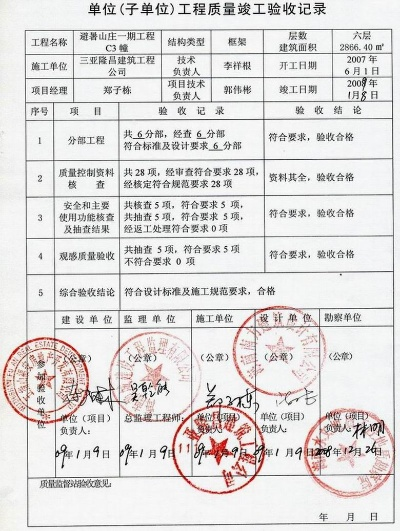 单位(子单位)工程质量竣工验收记录
工程名称 避暑山庄一期工程C3幢 结构类型 框架 层数建筑面积 六层 2866.40㎡
施工单位 三亚隆昌建筑工程公司 技术负责人 李祥根 开工日期 2007年6月1日
项目经理 郑子栋 项目技术负责人 郭伟彬 竣工日期 年1月8日
序号 项目 验收记录 验收结论
1 分部工程 共6分部，经查6分部 符合要求，验收合格
符合标准及设计要求6分部
2 质量控制资料核查 共28项，经审查符合要求28项 资料其全，验收合格
经核定符合规范要求28项
3 安全和主要使用功能核查及抽查结果 共核查5项，符合要求5项， 符合要求，验收合格
共抽查5项，符合要求5项，
经返工处理符合要求0项
4 观感质量验收 共抽查5项，符合要求5项 符合要求，验收合格
不符合要求0项
5 综合验收结论 符合设计标准及施工规范要求，合格
参加验收单位
建设单位 监理单位 施工单位 设计单位 勘察单位
(公章) (公章) (公章) (公章) (公章)
单位(项目)负责人: 总监理工程师: 单位(项目)负责人: 单位(项目)负责人: 单位(项目)负责人:
09年1月9日 09年1月9日 09年1月9日 09年1月9日 2008年12月26日
质量监督站验收意见:
年 月 日